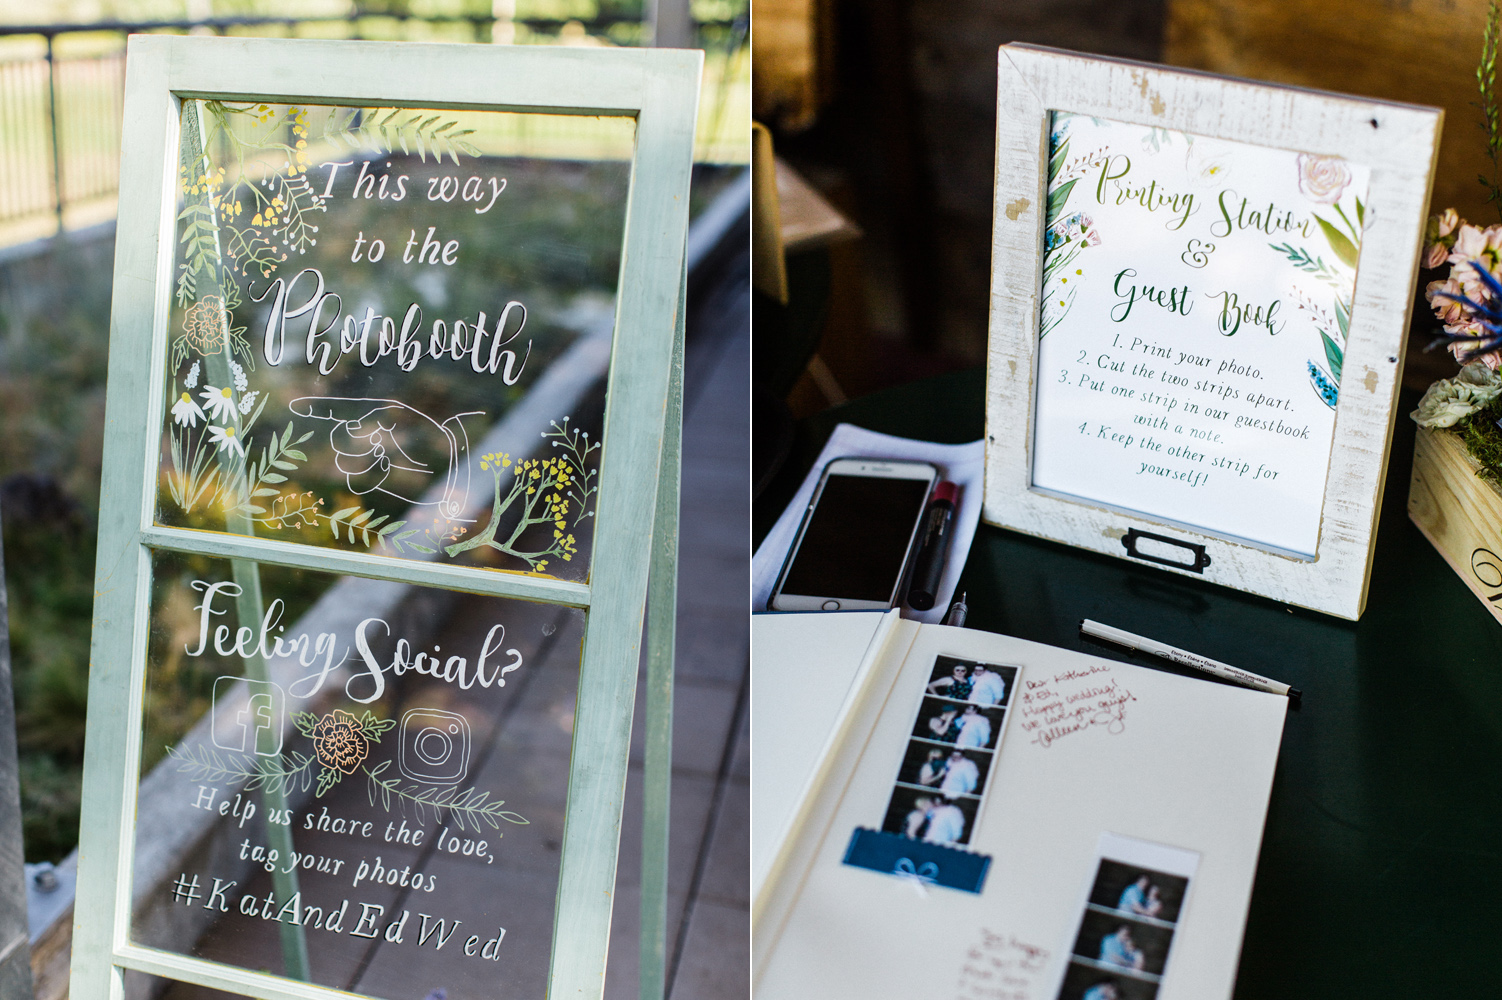 This way
to the
Photobooth
Feeling Social?
Help us share the love,
tag your photos
#KatAndEdWed
Printing Station
&
Guest Book
1. Print your photo.
2. Cut the two strips apart.
3. Put one strip in our guestbook
with a note.
4. Keep the other strip for
yourself!
Dear Katherine
& Ed,
Happy wedding!
We love you guys!
-Colleen